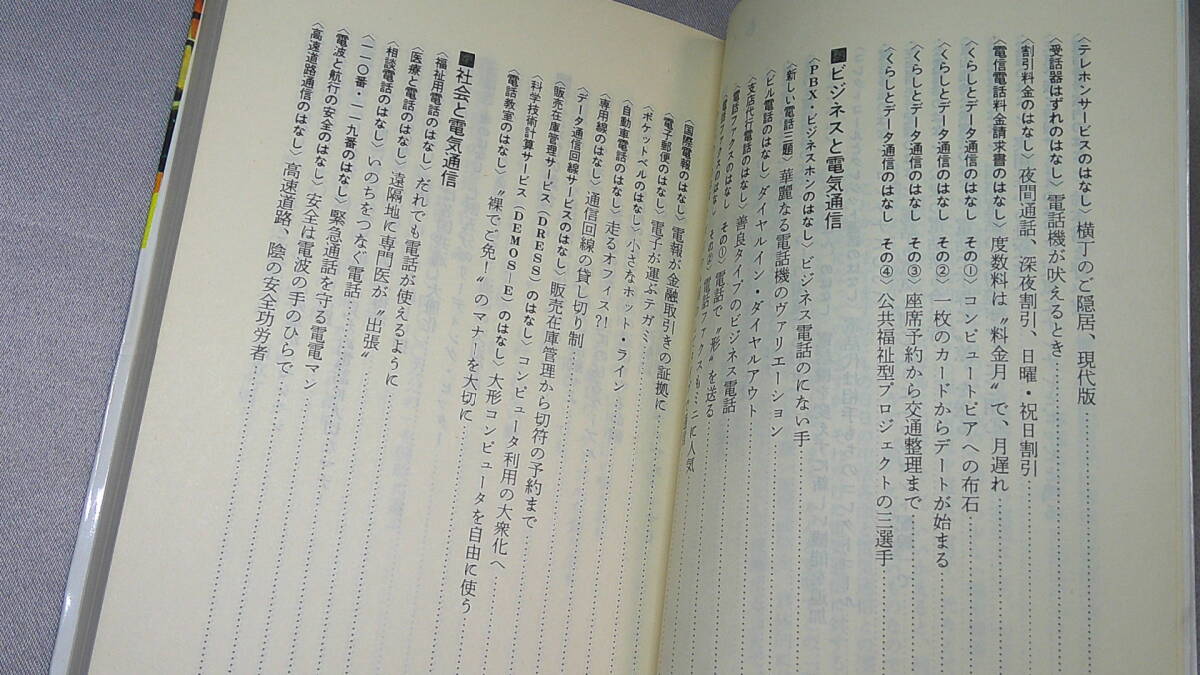 〈テレホンサービスのはなし〉横丁のご隠居、現代版
〈受話器はずれのはなし〉電話機が吠えるとき
〈割引料金のはなし〉夜間通話、深夜割引、日曜・祝日割引
〈電信電話料金請求書のはなし〉度数料は〝料金月〟で、月遅れ
〈くらしとデータ通信のはなし その①〉コンピュートピアへの布石
〈くらしとデータ通信のはなし その②〉一枚のカードからデートが始まる
〈くらしとデータ通信のはなし その③〉座席予約から交通整理まで
〈くらしとデータ通信のはなし その④〉公共福祉型プロジェクトの三選手
ビジネスと電気通信
〈PBX・ビジネスホンのはなし〉ビジネス電話のにない手
〈新しい電話三題〉華麗なる電話機のヴァリエーション
〈ビル電話のはなし〉ダイヤルイン・ダイヤルアウト
〈支店代行電話のはなし〉善良タイプのビジネス電話
〈電話ファックスのはなし その①〉電話で〝形〟を送る
〈電話ファックスのはなし 電話ファックスもミニに人気
〈国際電報のはなし〉電報が金融取引きの証拠に
〈電子郵便のはなし〉電子が運ぶテガミ
〈ポケットベルのはなし〉小さなホット・ライン
〈自動車電話のはなし〉走るオフィス?!
〈専用線のはなし〉通信回線の貸し切り制
〈データ通信回線サービスのはなし〉
〈販売在庫管理サービス(DRESS)のはなし〉販売在庫管理から切符の予約まで
〈科学技術計算サービス(DEMOS-E)のはなし〉コンピュータ利用の大衆化へ
大形コンピュータを自由に使う
〈電話教室のはなし〉〝裸でご免!〟のマナーを大切に
社会と電気通信
〈福祉用電話のはなし〉だれでも電話が使えるように
〈医療と電話のはなし〉遠隔地に専門医が〝出張〟
〈相談電話のはなし〉いのちをつなぐ電話
〈一一〇番・一一九番のはなし〉緊急通話を守る電電マン
〈電波と航行の安全のはなし〉安全は電波の手のひらで
〈高速道路通信のはなし〉高速道路、陰の安全功労者